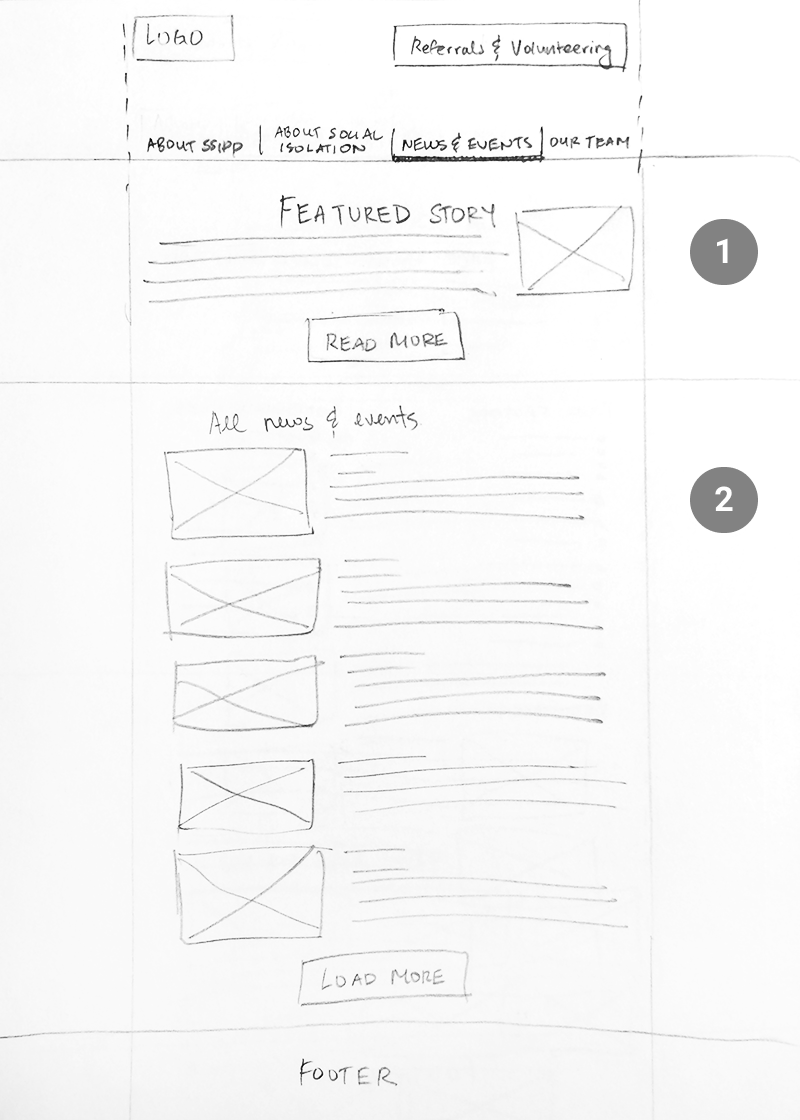 LOGO
Referrals & Volunteering
ABOUT SSIPP
ABOUT SOCIAL
ISOLATION
NEWS & EVENTS
OUR TEAM
FEATURED STORY
1
READ MORE
All news & events
2
LOAD MORE
FOOTER